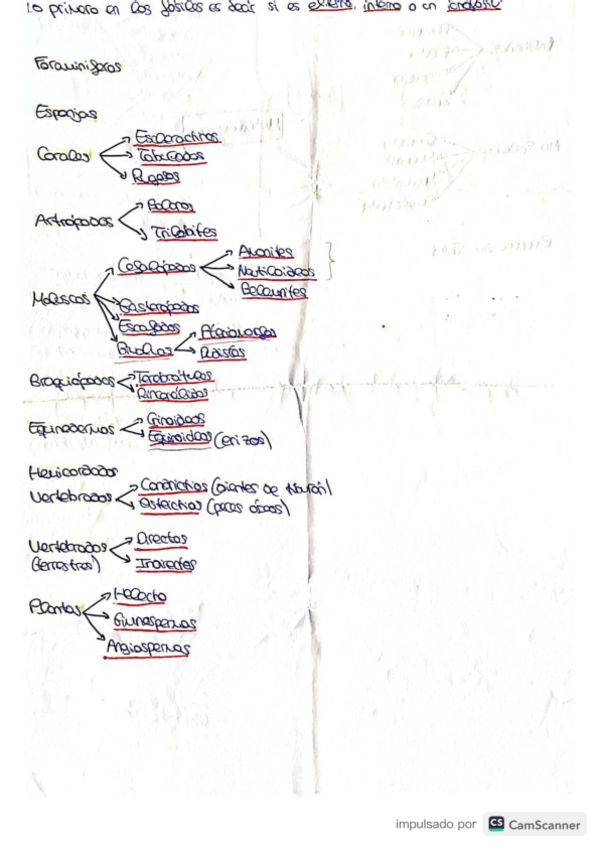 Lo primero en los fósiles es decir si es externo, interno o en
Foraminíferos
Esponjas
Corales
Escleractinos
Tabulados
Rugosos
Artrópodos
Trilobites
Moluscos
Cefalópodos
Amonites
Nautiloideos
Belemnites
Gasterópodos
Escafodos
Bivalvos
Rudistas
Braquiópodos
Terebrátulas
Equinodermos
Crinoideos
Equinoideos (erizos)
Hemicordados
Vertebrados
Condrictios (dientes de tiburón)
Osteictios (peces óseos)
Vertebrados (terrestres)
Directos
Indirectos
Plantas
Helecho
Gimnospermas
Angiospermas
impulsado por CS CamScanner